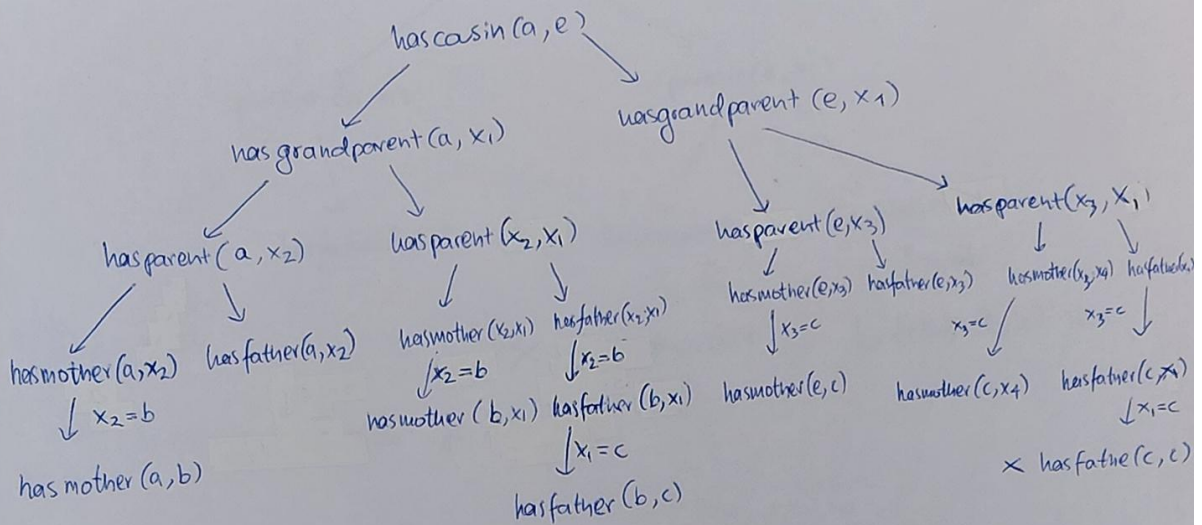 hascousin(a,e)
hasgrandparent(a,x1)
hasgrandparent(e,x1)
hasparent(a,x2)
hasparent(x2,x1)
hasparent(e,x3)
hasparent(x3,x1)
hasmother(a,x2)
hasfather(a,x2)
hasmother(x2,x1)
hasfather(x2,x1)
hasmother(e,x3)
hasfather(e,x3)
hasmother(x3,x4)
x2=b
x2=b
x2=b
x3=c
x3=c
x3=c
hasmother(a,b)
hasmother(b,x1)
hasfather(b,x1)
hasmother(e,c)
hasmother(c,x4)
x1=c
x1=c
hasfather(b,c)
x hasfathe(c,c)